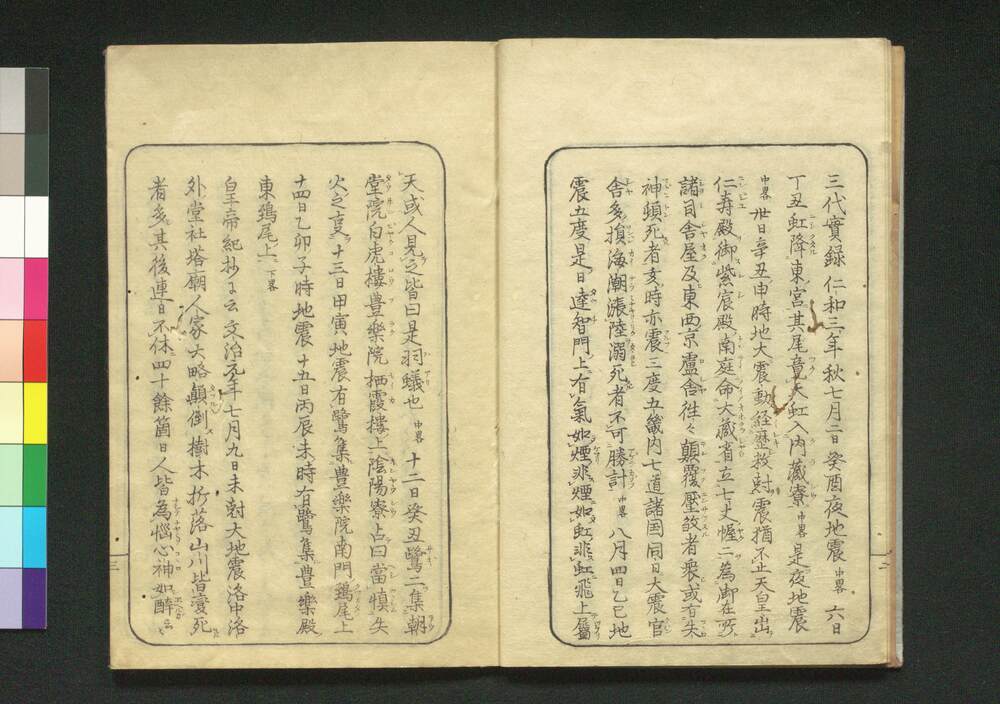 三代實録 仁和三年秋七月二日癸酉夜地震 中畧 六日
丁丑虹降東宮其尾竟天虹入内藏寮 中畧 是夜地震
中畧 卅日辛丑申時地大震動経歴数尅震猶不止天皇出
仁寿殿御紫宸殿南庭命大藏省立七丈幄二為御在所
諸司舎屋及東西京盧舎徃々顛覆壓殺者衆或有失
神頓死者亥時亦震三度五畿内七道諸国同日大震官
舎多損海潮漲陸溺死者不可勝計 中畧 八月四日乙巳地
震五度是日達智門上有氣如煙非煙如虹非虹飛上属
天或人見之皆曰是羽蟻也 中畧 十二日癸丑鷺二集朝
堂院白虎樓豊樂院栖霞樓上陰陽寮占曰當慎失
火之変十三日甲寅地震有鷺集豊樂院南門鵄尾上
十四日乙卯子時地震十五日丙辰未時有鷺集豊樂殿
東鵄尾上 下畧
皇帝紀抄に云文治元年七月九日未尅大地震洛中洛
外堂社塔廟人家大略顛倒樹木折落山川皆変死
者多其後連日不休四十餘箇日人皆為悩心神如酔云云
二
三